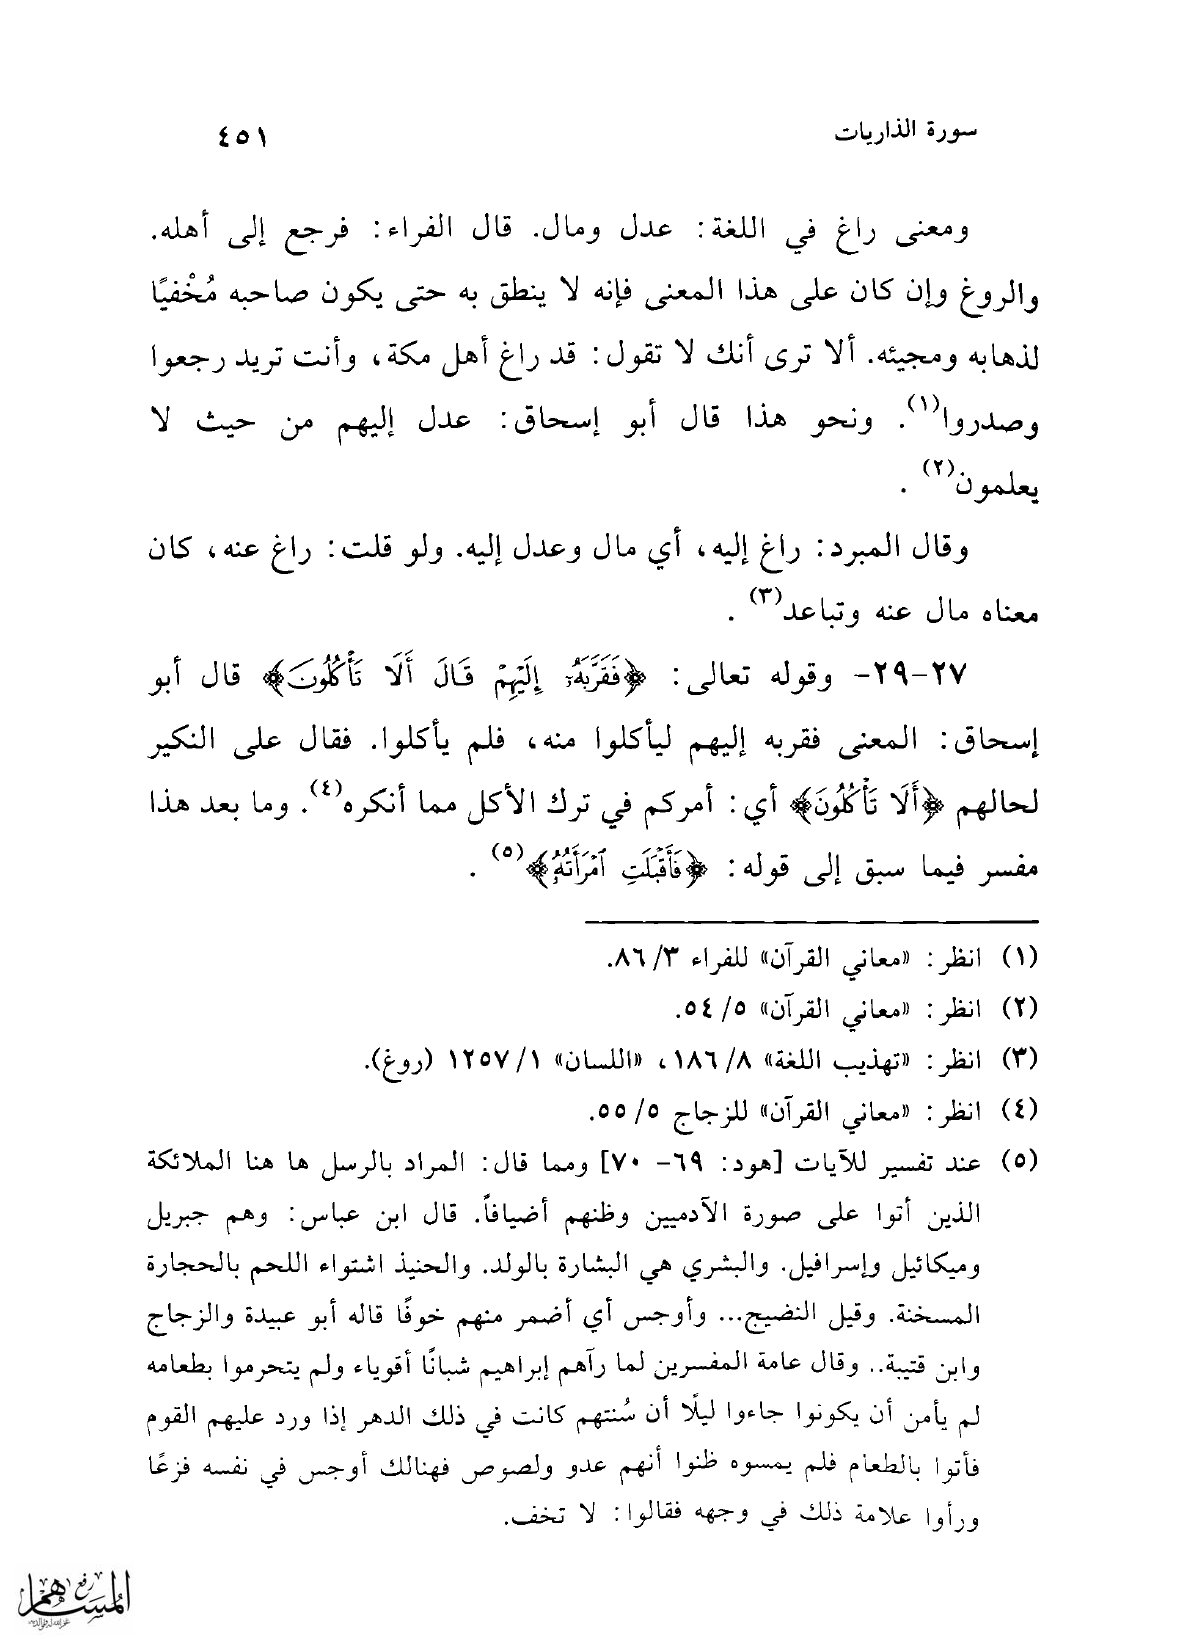 سورة الذاريات ٤٥١
ومعنى راغ في اللغة: عدل ومال. قال الفراء: فرجع إلى أهله.
والروغ وإن كان على هذا المعنى فإنه لا ينطق به حتى يكون صاحبه مُخْفيًا
لذهابه ومجيئه. ألا ترى أنك لا تقول: قد راغ أهل مكة، وأنت تريد رجعوا
وصدروا(١). ونحو هذا قال أبو إسحاق: عدل إليهم من حيث لا
يعلمون(٢) .
وقال المبرد: راغ إليه، أي مال وعدل إليه. ولو قلت: راغ عنه، كان
معناه مال عنه وتباعد(٣) .
٢٧-٢٩- وقوله تعالى: ﴿فَقَرَّبَهُۥٓ إِلَيْهِمْ قَالَ أَلَا تَأْكُلُونَ﴾ قال أبو
إسحاق: المعنى فقربه إليهم ليأكلوا منه، فلم يأكلوا. فقال على النكير
لحالهم ﴿أَلَا تَأْكُلُونَ﴾ أي: أمركم في ترك الأكل مما أنكره(٤). وما بعد هذا
مفسر فيما سبق إلى قوله: ﴿فَأَقْبَلَتِ ٱمْرَأَتُهُۥ﴾(٥) .
(١) انظر: «معاني القرآن» للفراء ٣/ ٨٦.
(٢) انظر: «معاني القرآن» ٥/ ٥٤.
(٣) انظر: «تهذيب اللغة» ٨/ ١٨٦، «اللسان» ١/ ١٢٥٧ (روغ).
(٤) انظر: «معاني القرآن» للزجاج ٥/ ٥٥.
(٥) عند تفسير للآيات [هود: ٦٩- ٧٠] ومما قال: المراد بالرسل ها هنا الملائكة
الذين أتوا على صورة الآدميين وظنهم أضيافاً. قال ابن عباس: وهم جبريل
وميكائيل وإسرافيل. والبشري هي البشارة بالولد. والحنيذ اشتواء اللحم بالحجارة
المسخنة. وقيل النضيج... وأوجس أي أضمر منهم خوفًا قاله أبو عبيدة والزجاج
وابن قتيبة.. وقال عامة المفسرين لما رآهم إبراهيم شبانًا أقوياء ولم يتحرموا بطعامه
لم يأمن أن يكونوا جاءوا ليلًا أن سُنتهم كانت في ذلك الدهر إذا ورد عليهم القوم
فأتوا بالطعام فلم يمسوه ظنوا أنهم عدو ولصوص فهنالك أوجس في نفسه فزعًا
ورأوا علامة ذلك في وجهه فقالوا: لا تخف.